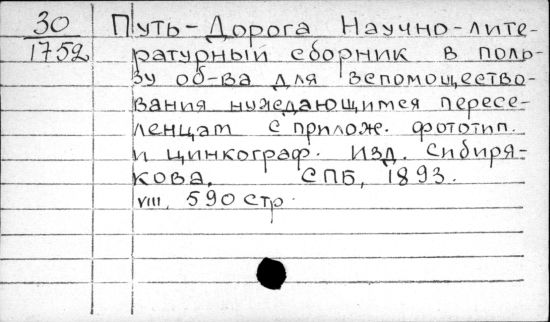 30 Путь-Дорога Научно-лите-
1752 ратурный сборник в поль-
зу об-ва для вспомощество-
вания нуждающимся пересе-
ленцам с прилож. фототип.
и цинкограф. Изд. Сибиря-
кова. СПБ, 1893.
VIII, 590 стр.